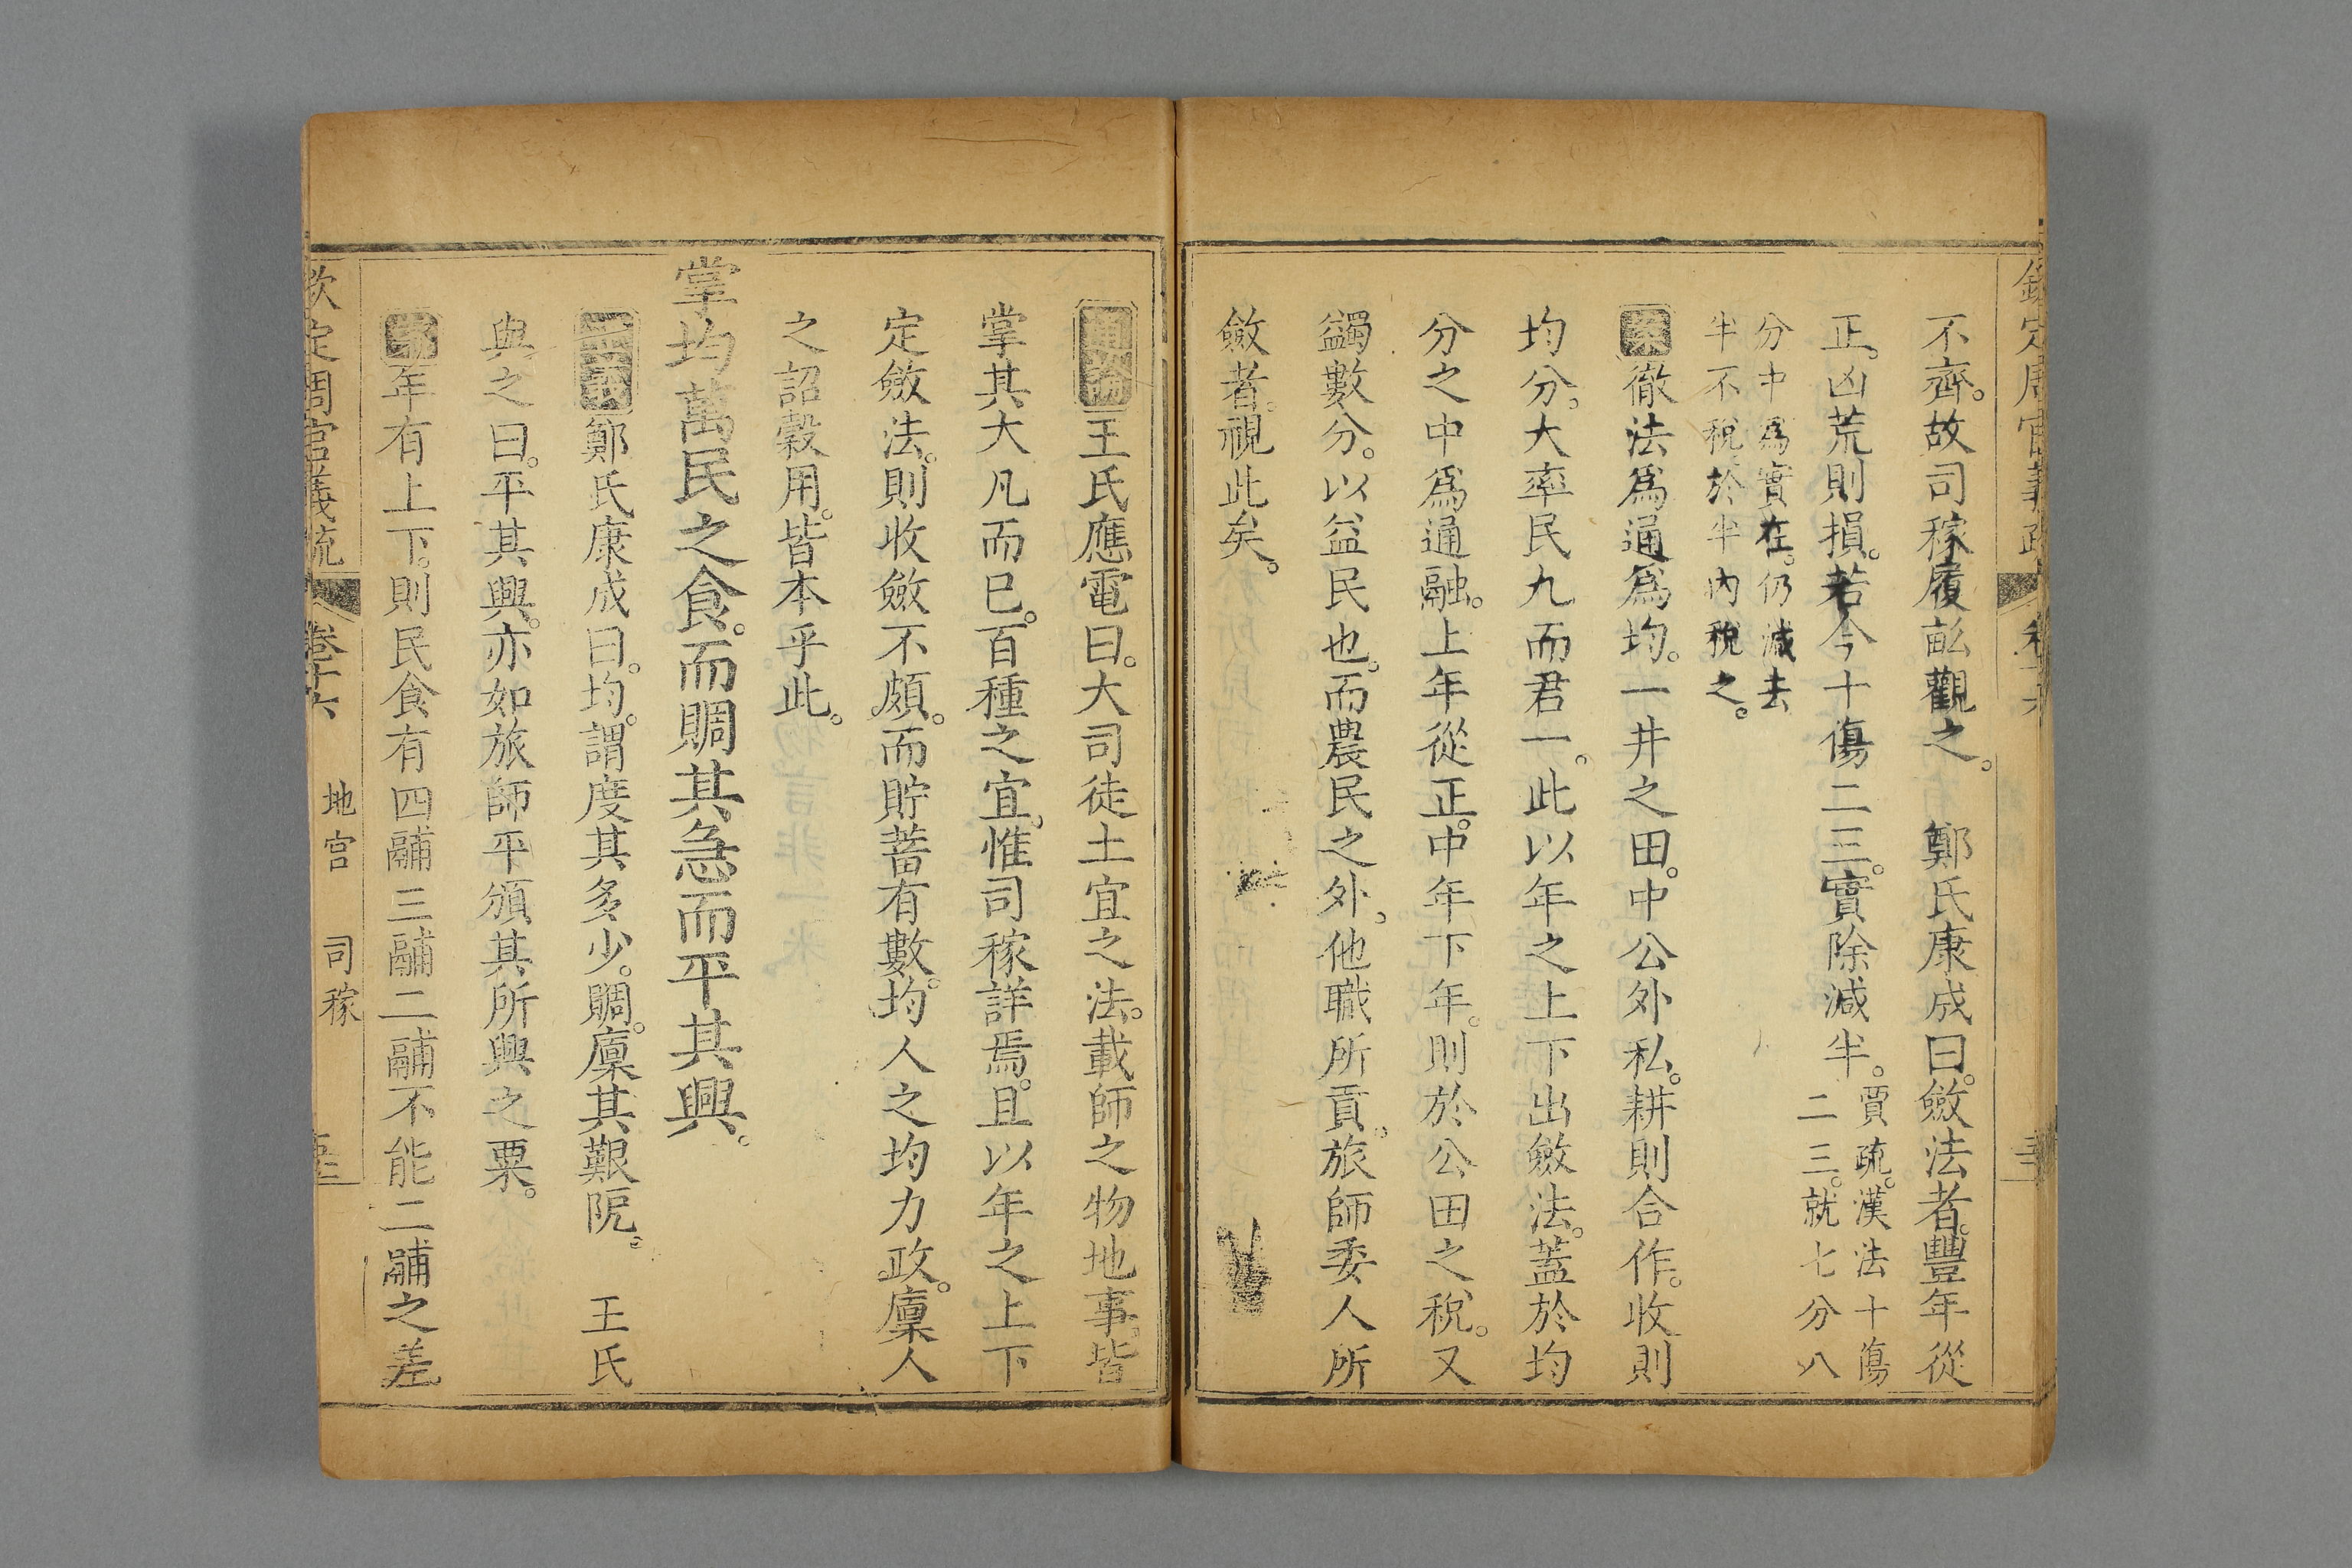 欽定周官義疏 卷十六
不齊。故司稼履畝觀之。　鄭氏康成曰。斂法者。豐年從
正。凶荒則損。若今十傷二三。實除減半。賈疏。漢法十傷二三。就七分八
分中爲實在。仍減去半不稅。於半內稅之。
案徹法爲通爲均。一井之田。中公外私。耕則合作。收則
均分。大率民九而君一。此以年之上下出斂法。蓋於均
分之中爲通融。上年從正。中年下年。則於公田之稅。又
蠲數分。以益民也。而農民之外。他職所貢。旅師委人所
斂者。視此矣。
通論王氏應電曰。大司徒土宜之法。載師之物地事。皆
掌其大凡而已。百種之宜。惟司稼詳焉。且以年之上下
定斂法。則收斂不頗。而貯蓄有數。均人之均力政。廩人
之詔穀用。皆本乎此。
掌均萬民之食。而賙其急而平其興。
正義鄭氏康成曰。均。謂度其多少。賙。廩其艱阨。　王氏
與之曰。平其興。亦如旅師平頒其所興之粟。
案年有上下。則民食有四鬴三鬴二鬴不能二鬴之差
欽定周官義疏　卷十六　地官　司稼